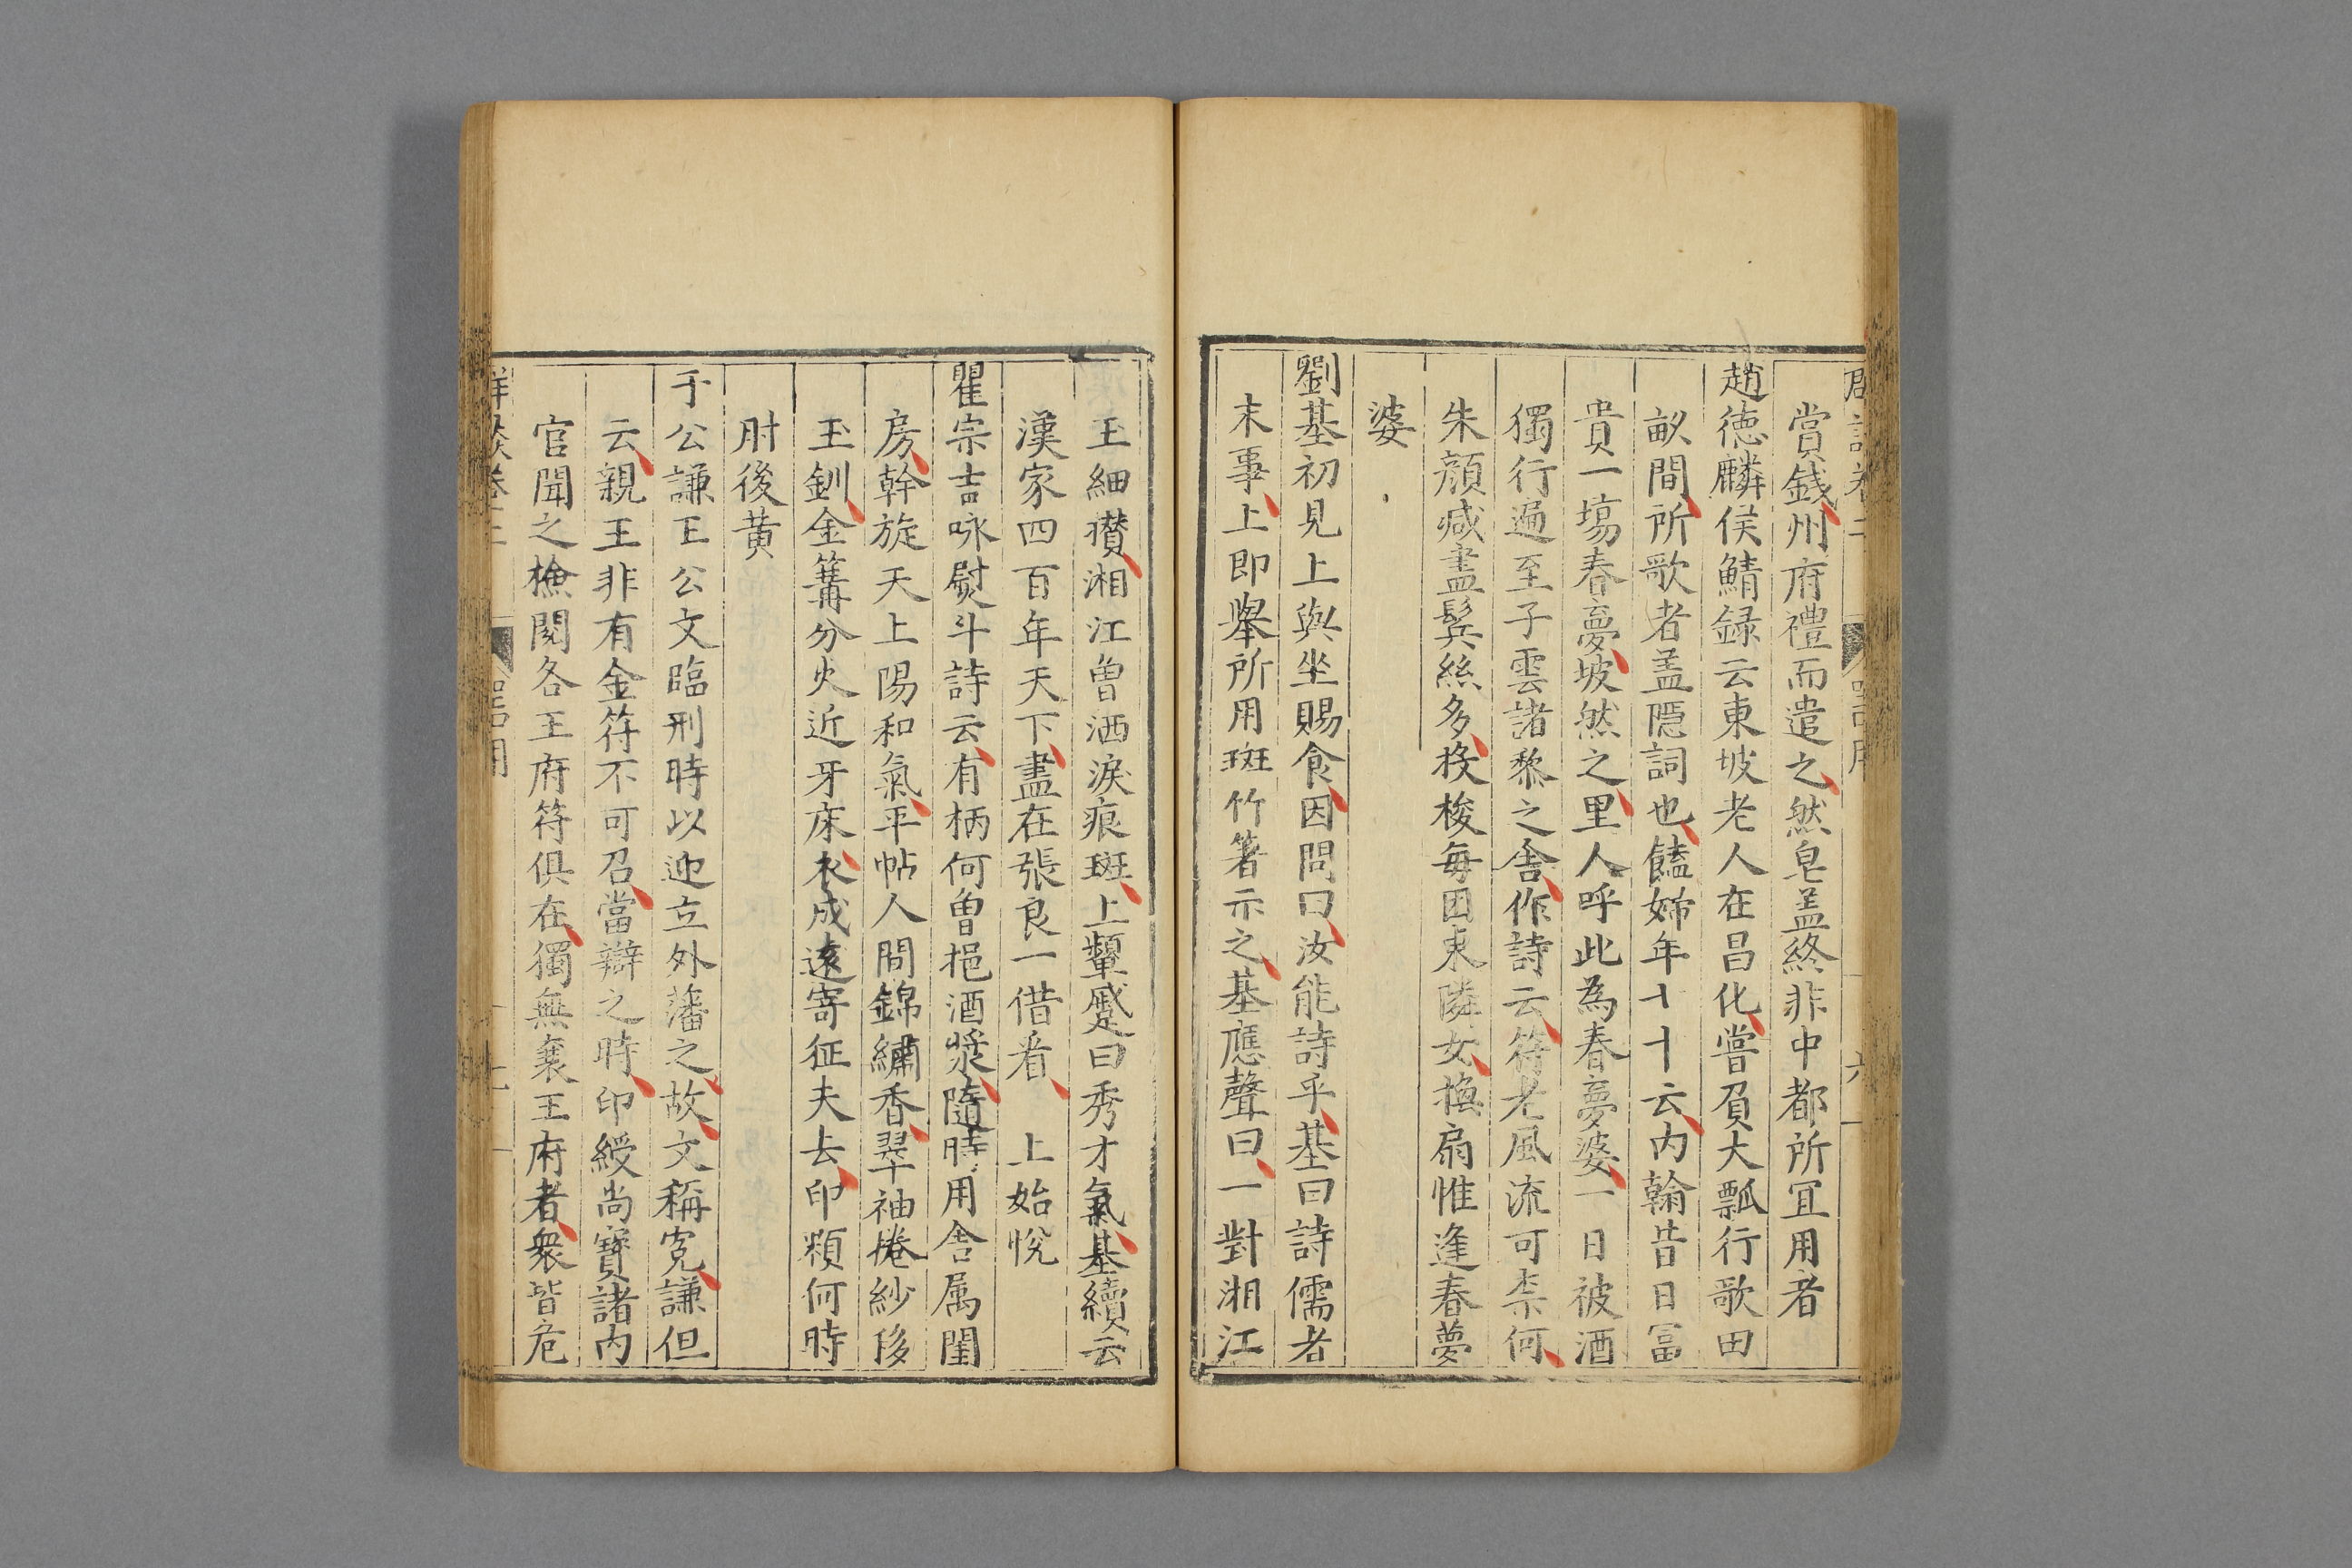 賞錢州府禮而遣之然皂盖終非中都所冝用者
趙德麟侯鯖録云東坡老人在昌化嘗負大瓢行歌田
畝間所歌者盖隠詞也饁婦年十云内翰昔日冨
貴一塲春夢坡然之里人呼此為春夢婆一日被酒
獨行遍至子雲諸黎之舎作詩云符老風流可柰何
朱顔减盡鬂絲多投梭每因東隣女換扇惟逢春夢
婆
劉基初見上與坐賜食因問曰汝能詩乎基曰詩儒者
末事上即舉所用斑竹箸示之基應聲曰一對湘江
玉細攅湘江曾洒淚痕斑上顰蹙曰秀才氣基續云
漢家四百年天下盡在張良一借看 上始悅
瞿宗吉咏熨斗詩云有柄何曾挹酒漿隨時用舎属閨
房斡旋天上陽和氣平帖人間錦繡香翠袖捲紗移
玉釧金篝分火近牙床衣成逺寄征夫去印䫫何時
肘後黄
于公謙王公文臨刑時以迎立外藩之故文稱寃謙但
云親王非有金符不可召當辯之時印綬尚寳諸内
官聞之撿閱各王府符俱在獨無襄王府者衆皆危